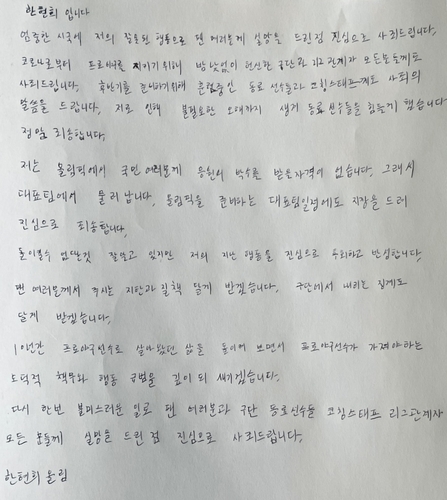 한현희 입니다
엄중한 시국에 저의 잘못된 행동으로 팬 여러분께 실망을 드린점 진심으로 사죄드립니다.
코로나로부터 프로야구를 지키기위해 밤낮없이 헌신한 구단과 리그 관계자 모든분들께도
사죄드립니다. 후반기를 준비하기위해 훈련중인 동료 선수들과 코칭스태프께도 사죄의
말씀을 드립니다. 저로 인해 불필요한 오해까지 생겨 동료선수들을 힘들게 했습니다
정말 죄송합니다.
저는 올림픽에서 국민 여러분께 응원의 박수를 받을자격이 없습니다. 그래서
대표팀에서 물러 납니다. 올림픽을 준비하는 대표팀일정에도 지장을 드려
진심으로 죄송합니다.
돌이킬수 없다는것 잘알고 있지만 저의 지난 행동을 진심으로 후회하고 반성합니다.
팬 여러분께서 주시는 지탄과 질책 달게 받겠습니다. 구단에서 내리는 징계도
달게 받겠습니다.
10년간 프로야구선수로 살아왔던 삶을 돌이켜 보면서 프로야구선수가 가져야하는
도덕적 책무와 행동 규범을 깊이 되 새기겠습니다.
다시 한번 불미스러운 일로 팬 여러분과 구단 동료선수들 코칭스태프 리그관계자
모든 분들께 실망을 드린 점 진심으로 사죄드립니다.
한현희 올림